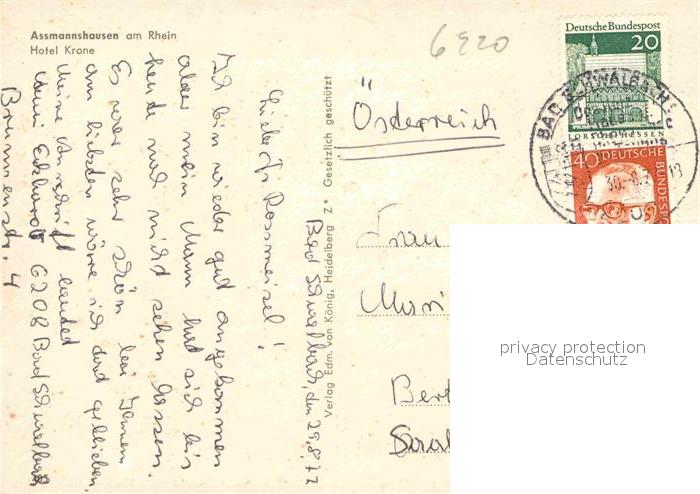 Assmannshausen am Rhein
Hotel Krone
6220
Bad Schwalbach, den 29.8.72
Liebe Fr. Rossmeisel!
Ich bin wieder gut angekommen
aber mein Mann hat sich bis
heute noch nicht sehen lassen.
Es war sehr schön bei Ihnen
am liebsten wäre ich dort geblieben.
Meine Anschrift lautet
Eckhardt 6208 Bad Schwalbach
Brunnenstr. 4
Verlag Edm. von König, Heidelberg Z* Gesetzlich geschützt
Österreich
Frau
Mari
Ber
Saal
Deutsche Bundespost
20
LORSCH/HESSEN
40 DEUTSCHE BUNDESPO
BAD SCHWALBACH
30.-8.
privacy protection
Datenschutz